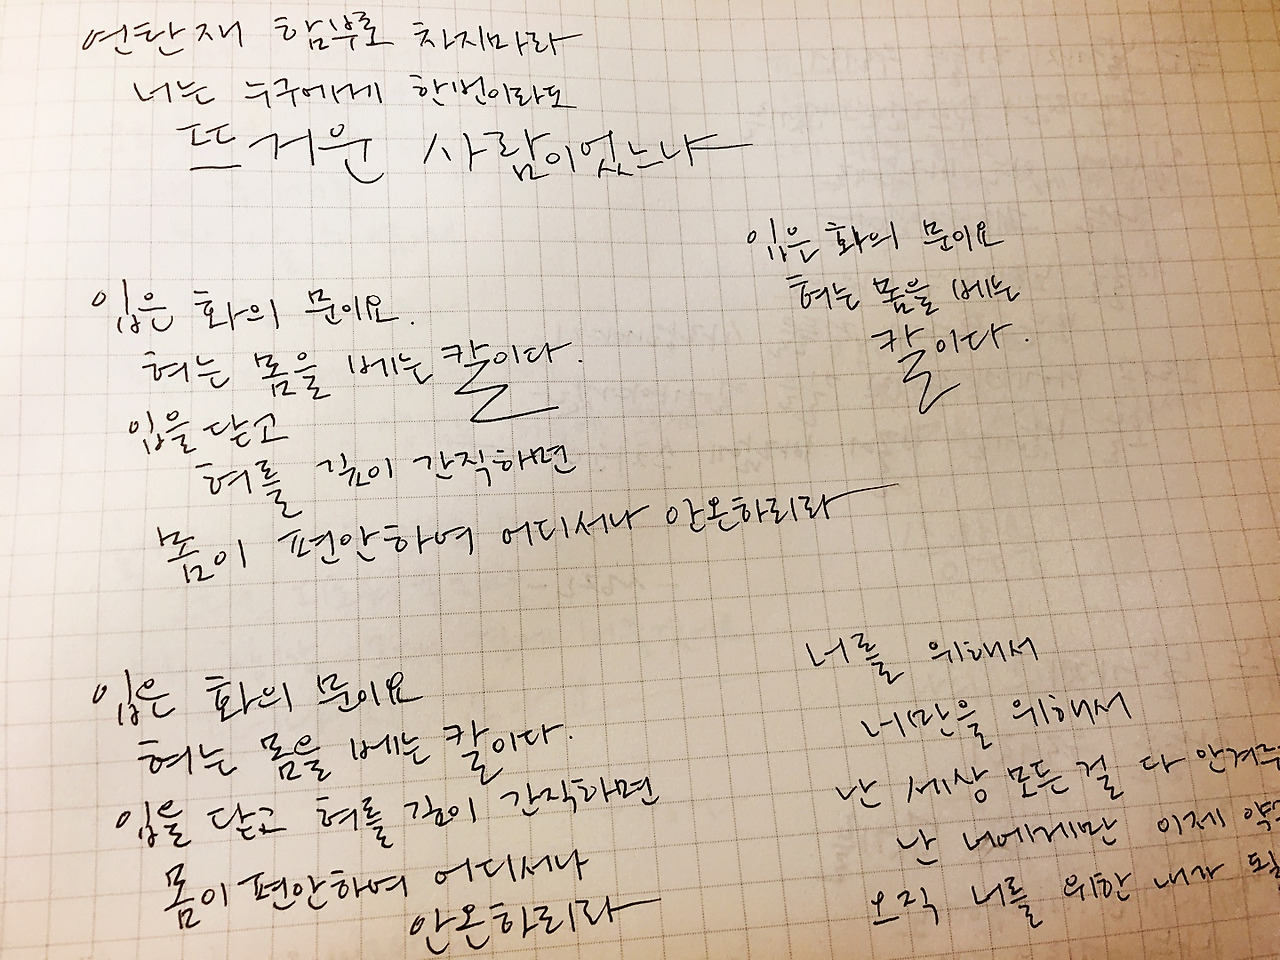 연탄재 함부로 차지마라
너는 누구에게 한번이라도
뜨거운 사람이었느냐
입은 화의 문이요
혀는 몸을 베는
칼이다.
입은 화의 문이요.
혀는 몸을 베는 칼이다.
입을 닫고
혀를 깊이 간직하면
몸이 편안하여 어디서나 안온하리라
입은 화의 문이요
혀는 몸을 베는 칼이다.
입을 닫고 혀를 깊이 간직하면
몸이 편안하여 어디서나
안온하리라
너를 위해서
너만을 위해서
난 세상 모든 걸 다 안겨
난 너에게만 이제
오직 너를 위한 내가